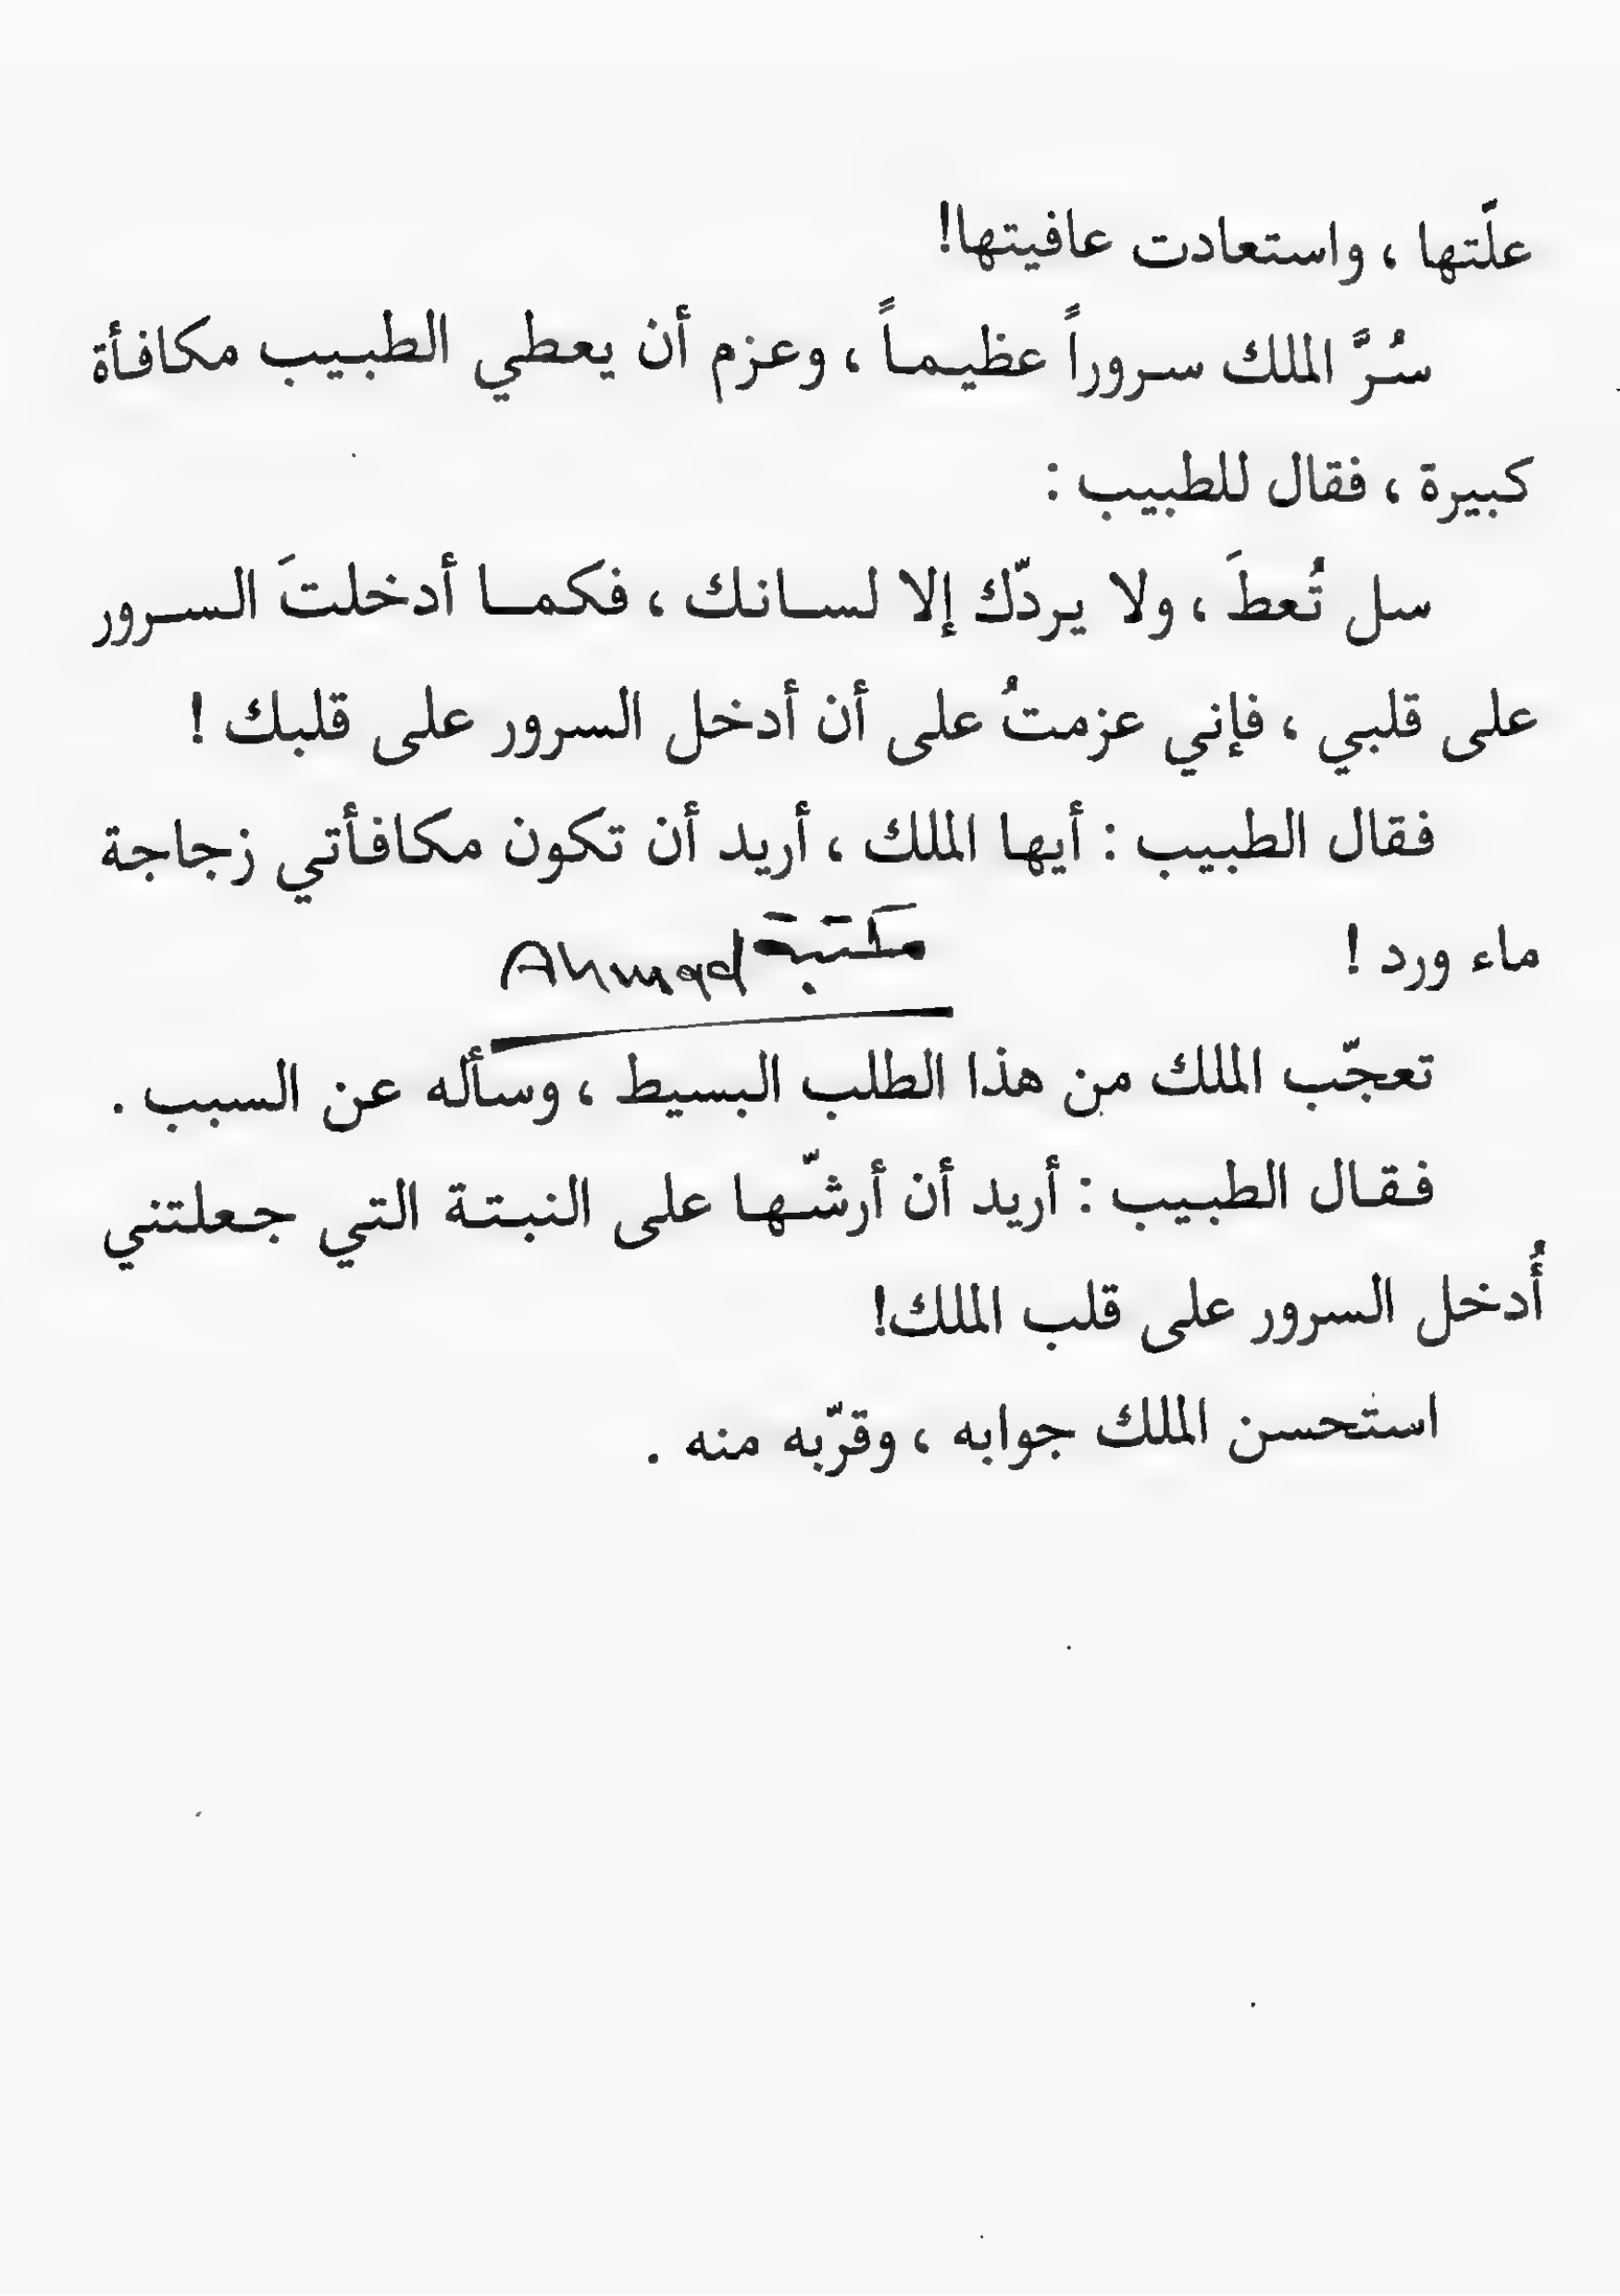 علّتها ، واستعادت عافيتها!
سُرَّ الملك سروراً عظيماً ، وعزم أن يعطي الطبيب مكافأة
كبيرة ، فقال للطبيب :
سل تُعطَ ، ولا يردّك إلا لسانك ، فكما أدخلتَ السرور
على قلبي ، فإني عزمتُ على أن أدخل السرور على قلبك !
فقال الطبيب : أيها الملك ، أريد أن تكون مكافأتي زجاجة
ماء ورد !
مكتبة Ahmad
تعجّب الملك من هذا الطلب البسيط ، وسأله عن السبب .
فقال الطبيب : أريد أن أرشّها على النبتة التي جعلتني
أُدخل السرور على قلب الملك!
استحسن الملك جوابه ، وقرّبه منه .